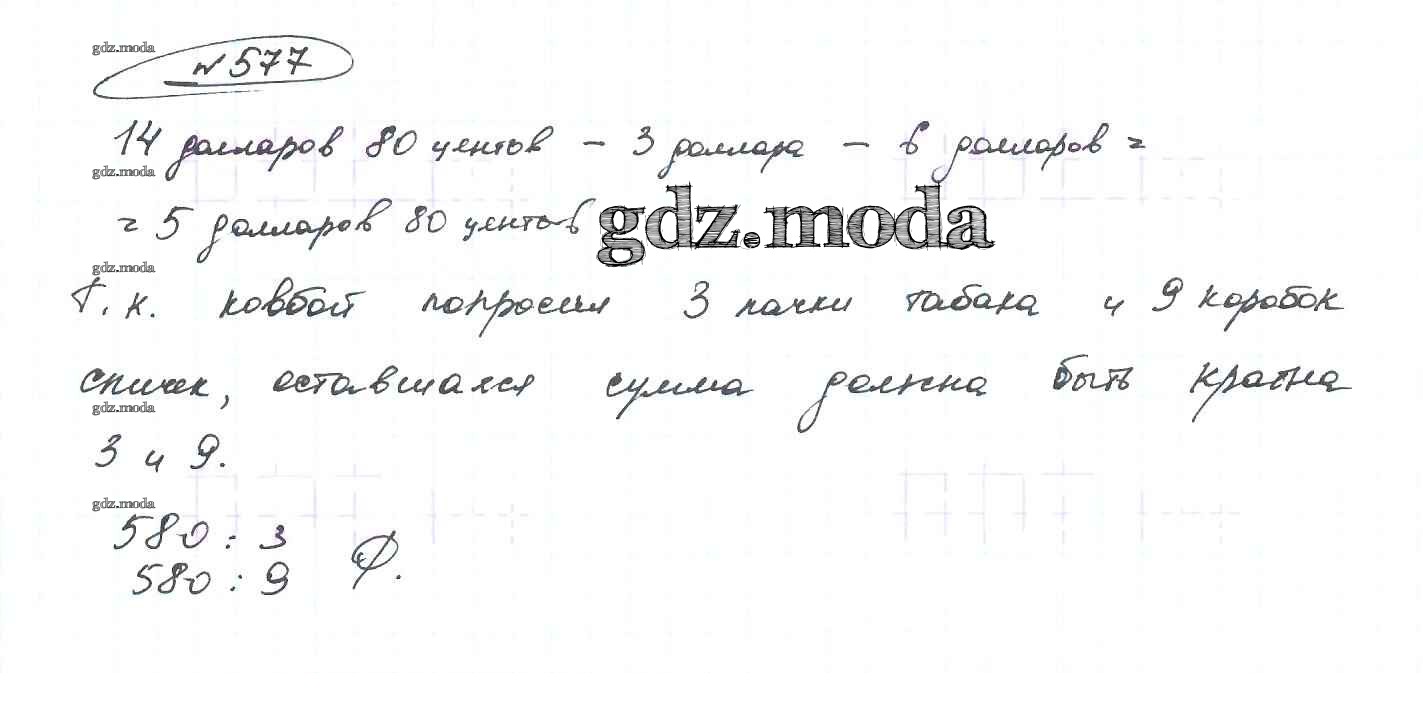 gdz.moda
№577
14 долларов 80 центов – 3 доллара – 6 долларов =
gdz.moda
= 5 долларов 80 центов gdz.moda
gdz.moda
Т.к. ковбой попросил 3 пачки табака и 9 коробок
спичек, оставшаяся сумма должна быть кратна
gdz.moda
3 и 9.
gdz.moda
580 : 3
580 : 9